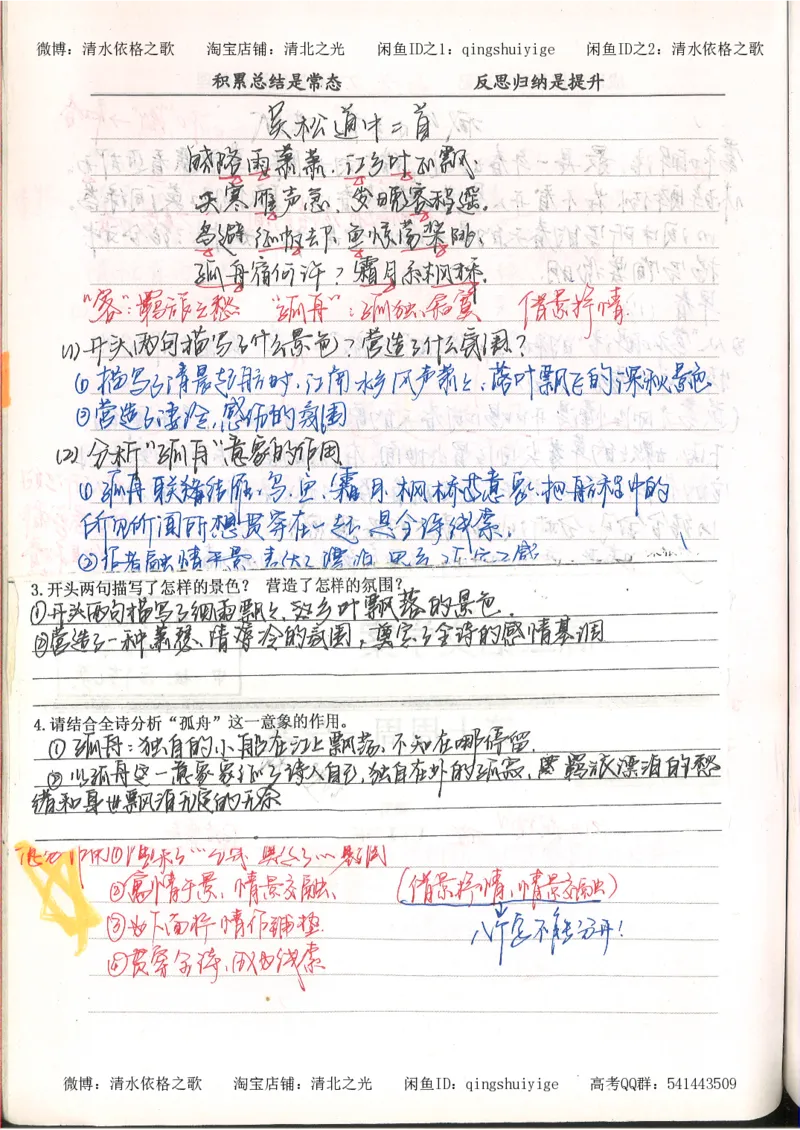 微博：清水依格之歌 淘宝店铺：清北之光 闲鱼ID之1：qingshuiyige 闲鱼ID之2：清水依格之歌
积累总结是常态 反思归纳是提升
吴松道中二首
雨萧萧，江乡叶正飘。
天寒雁声急，岁晚客程遥。
鸟避征帆去，鱼惊荡桨跳。
孤舟宿何许？霜月系枫桥。
“客”：羁旅之愁 “孤舟”：孤独、寂寞 借景抒情
(1)开头两句描写了什么景色？营造了什么氛围？
①描写了清晨起航时，江南水乡风声萧萧、落叶飘飞的深秋景色
②营造了凄冷、感伤的氛围
(2)分析“孤舟”意象的作用
①孤舟联络结雁、鸟、鱼、霜月、枫桥等意象，把舟程中的
所见所闻所想贯穿在一起，是全诗线索。
3.开头两句描写了怎样的景色？ 营造了怎样的氛围？
①开头两句描写了细雨飘飞，江乡叶飘落的景色。
②营造了一种萧瑟、清冷的氛围，奠定了全诗的感情基调
4.请结合全诗分析“孤舟”这一意象的作用。
①孤舟：独自的小船在江上飘荡，不知在哪停留.
②以孤舟这一意象象征了诗人自己，独自在外的孤寂，羁旅漂泊的愁
绪和身世飘泊无定的无奈
②寓情于景，情景交融 (借景抒情，情景交融)
③为下面抒情作铺垫 不能分开！
④贯穿全诗，成为线索
微博：清水依格之歌 淘宝店铺：清北之光 闲鱼ID：qingshuiyige 高考QQ群：541443509